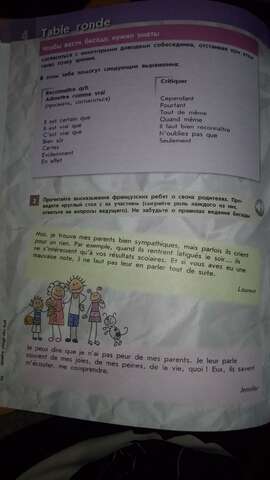 4 Table ronde
Чтобы вести беседу, нужно знать!
согласиться с некоторыми доводами собеседника, отстаивая при этом
свою точку зрения.
В этом тебе помогут следующие выражения:
Reconnaître qch
Admettre comme vrai
(признать, согласиться)
Il est certain que
Il est vrai que
C'est vrai que
Bien sûr
Certes
Évidemment
En effet
Critiquer
Cependant
Pourtant
Tout de même
Quand même
Il faut bien reconnaître
N'oubliez pas que
Seulement
Прочитайте высказывания французских ребят о своих родителях. Про-
ведите круглый стол
ответьте на вопросы ведущего). Не забудьте о правилах ведения беседы
Moi, je trouve mes parents bien sympathiques, mais parfois ils crient
pour un rien. Par exemple, quand ils rentrent fatigués le soir... ils
ne s'intéressent qu'à vos résultats scolaires. Et si vous avez eu une
mauvaise note, il ne faut pas leur en parler tout de suite.
Laurence
Je peux dire que je n'ai pas peur de mes parents. Je leur parle
souvent de mes joies, de mes peines, de la vie, quoi ! Eux, ils savent
m'écouter, me comprendre.
Jennifer